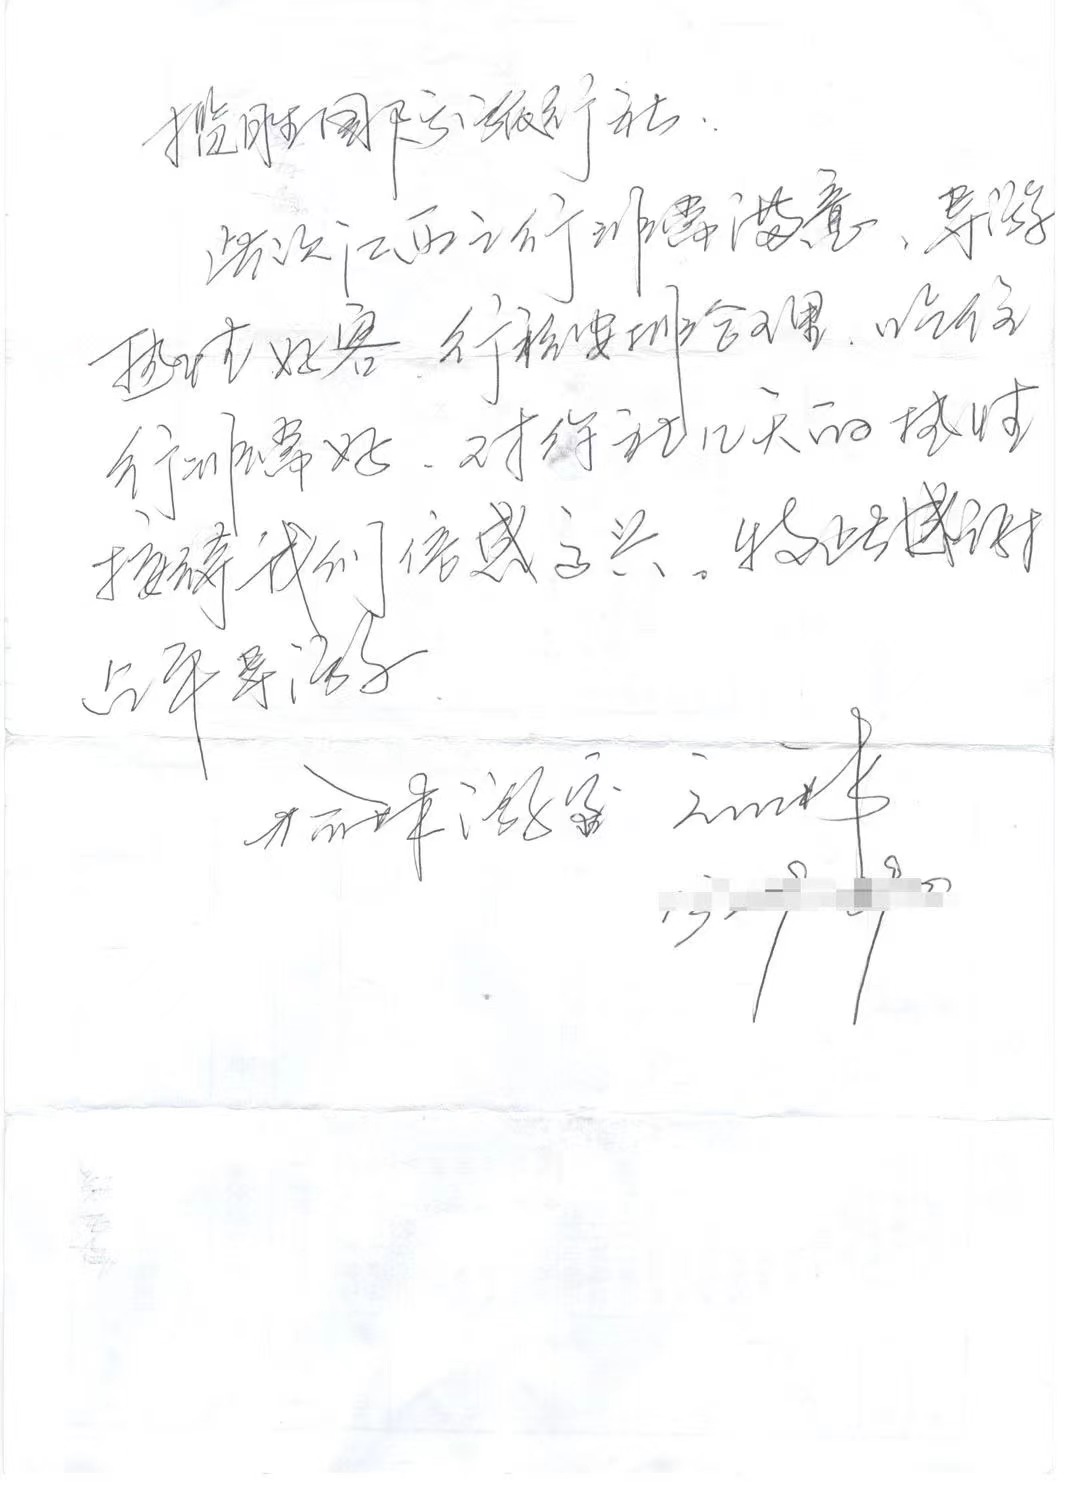 揽胜国际旅行社.
此次江西之行非常满意、导游
热情好客.行程安排合理.吃住
行非常好.对待社几天的热情
接待我们倍感高兴。特此感谢
占军导游
榆林游客